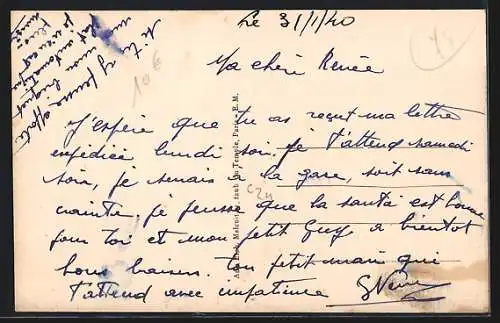 Le 31/1/40
Ma chérie Renée
J'espère que tu as reçut ma lettre
expédiée lundi soir. Je t'attend samedi
soir, je serais à la gare, soit sans
crainte. je pense que la santé est bonne
pour toi et mon petit Guy a bientot
bons baisers. Ton petit mari qui
t'attend avec impatience
Si tu y pense apporte
mon briquet
10€
C24